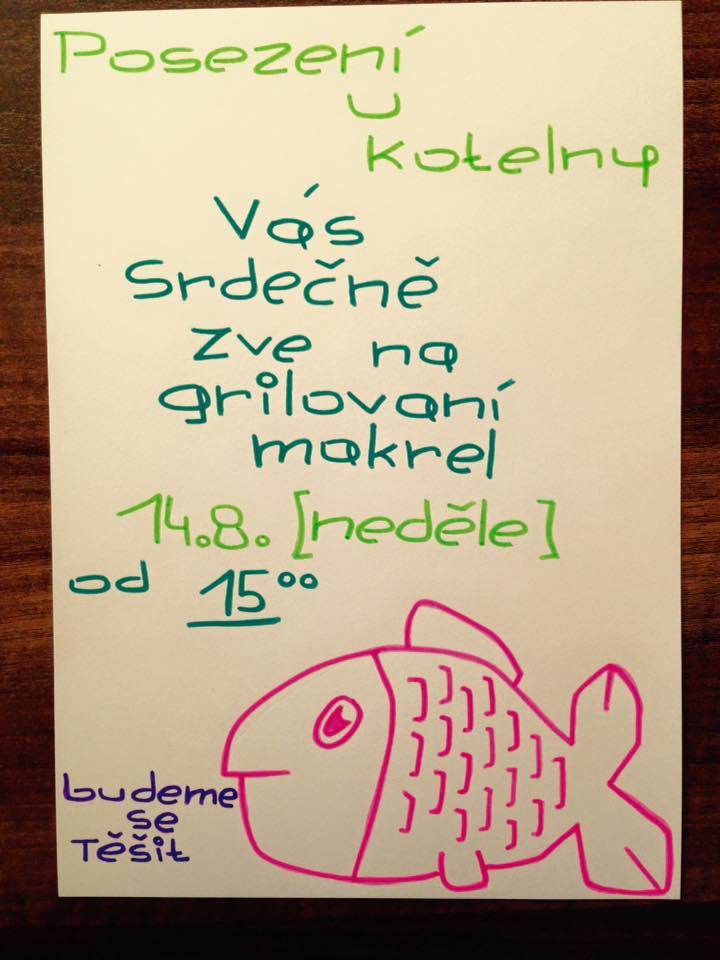 Posezení
u
kotelny
Vás
Srdečně
zve na
grilovaní
makrel
14.8. [neděle]
od 15⁰⁰
budeme
se
Těšit